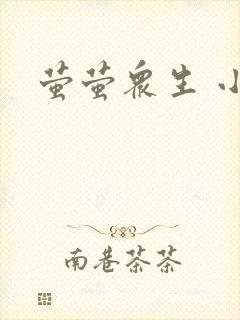 萤萤众生 小
南巷茶茶